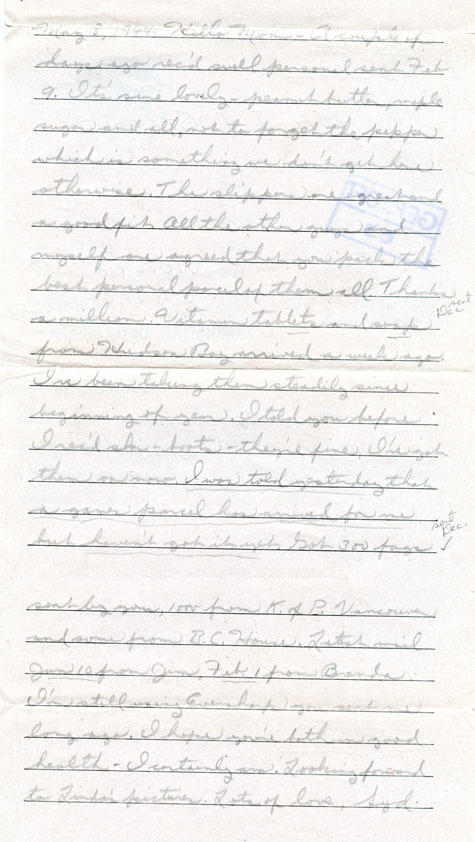 May 2, 1944. Hello Mom - A couple of
days ago rec'd swell personal sent Feb
9. It's sure lovely - peanut butter, maple
sugar and all, not to forget the pepper
which is something we don't get here
otherwise. The slippers are great and
a good fit. All the other guys and
myself are agreed that you pack the
best personal parcel of them all. Thanks
a million. Vitamin tablets and soap
sent Dec.
from Hudson Bay arrived a week ago.
I've been taking them steadily since
beginning of year. I told you before
I rec'd ski-boots - they're fine, I've got
them on now. I was told yesterday that
a games parcel has arrived for me
but haven't got it yet. Got 300 fags
sent Dec. ✓
sent by you, 1000 from K. of P. Vancouver
and some from B.C. House. Latest mail
Jan 10 from Jim, Feb 1 from Brenda.
I'm still using Eversharp you sent me
long ago. I hope you're both in good
health - I certainly am. Looking forward
to Linda's picture. Lots of love, Syd.